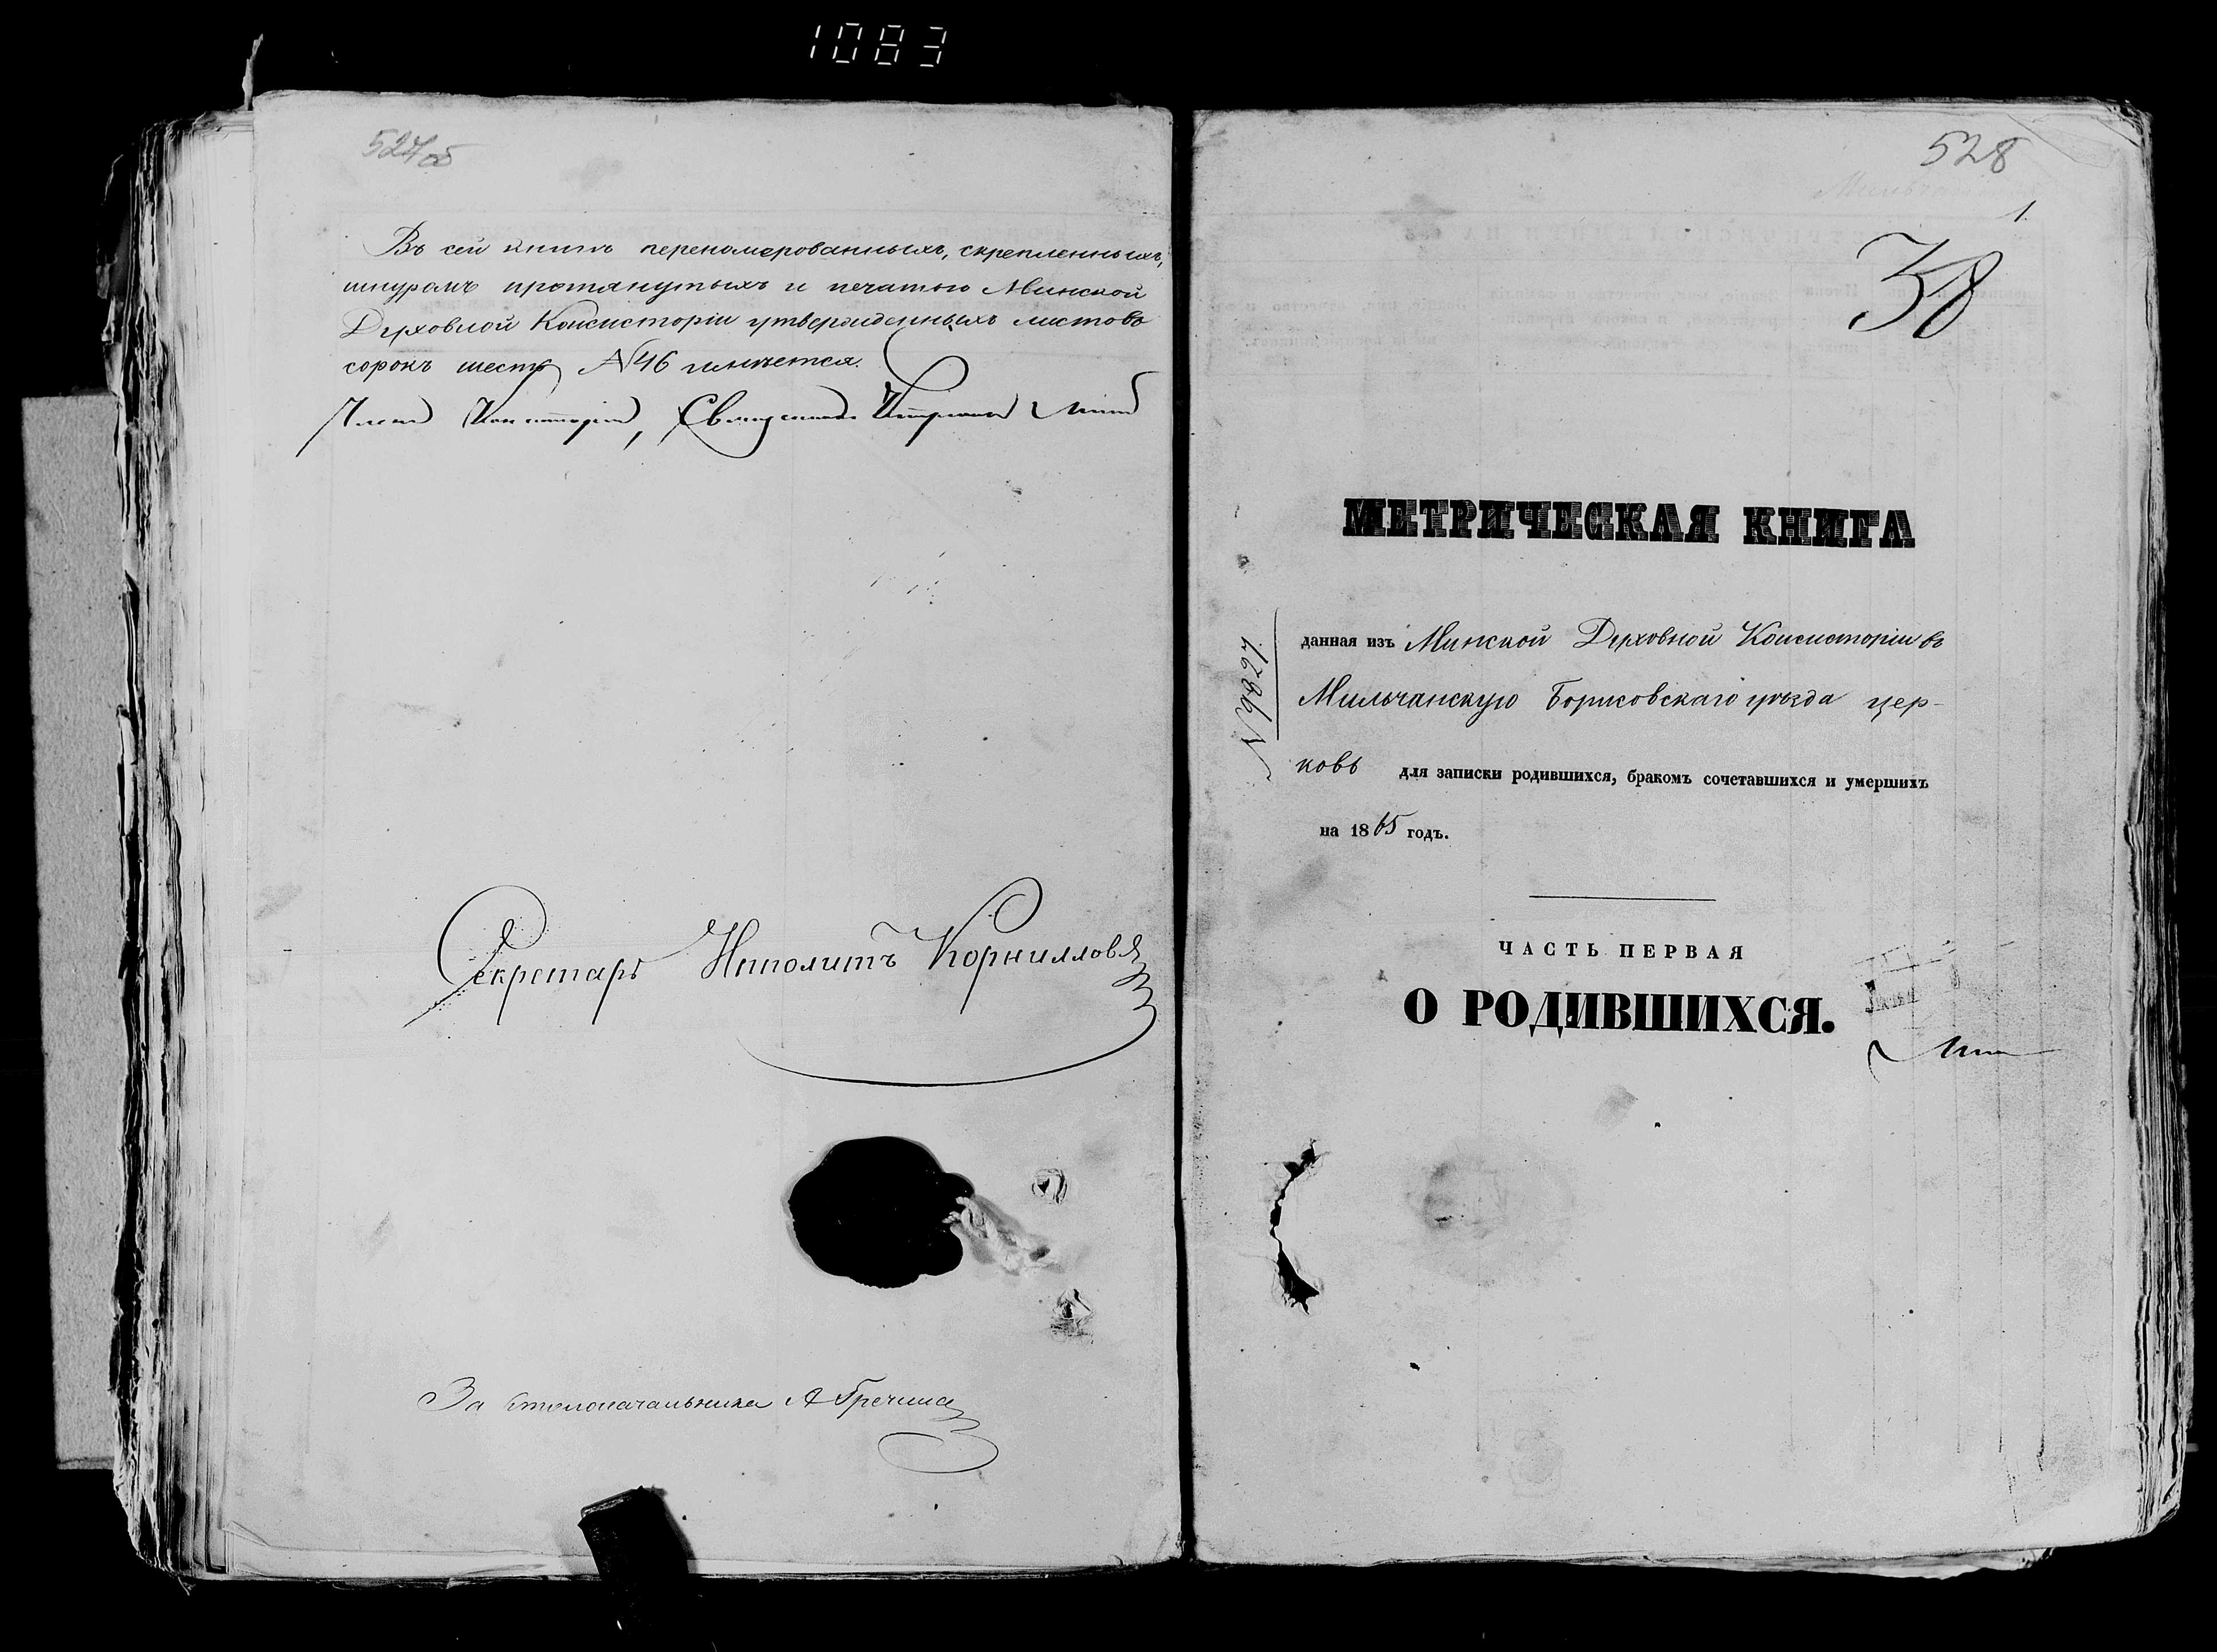 1083
527 об
Въ сей книгѣ перенумерованныхъ, скрепленныхъ,
шнуромъ протянутыхъ и печатью Минской
Духовной Консисторіи утвержденныхъ листовъ
сорокъ шесть № 46 имѣется.
Членъ Консисторіи, Священникъ
Секретарь Ипполитъ Корнилловъ
За Столоначальника А Гречина
528
1.
38
МЕТРИЧЕСКАЯ КНИГА
данная изъ Минской Духовной Консисторіи въ
Мильчанскую Борисовскаго уѣзда цер-
ковь для записки родившихся, бракомъ сочетавшихся и умершихъ
на 1865 годъ.
№ 9827.
ЧАСТЬ ПЕРВАЯ
О РОДИВШИХСЯ.